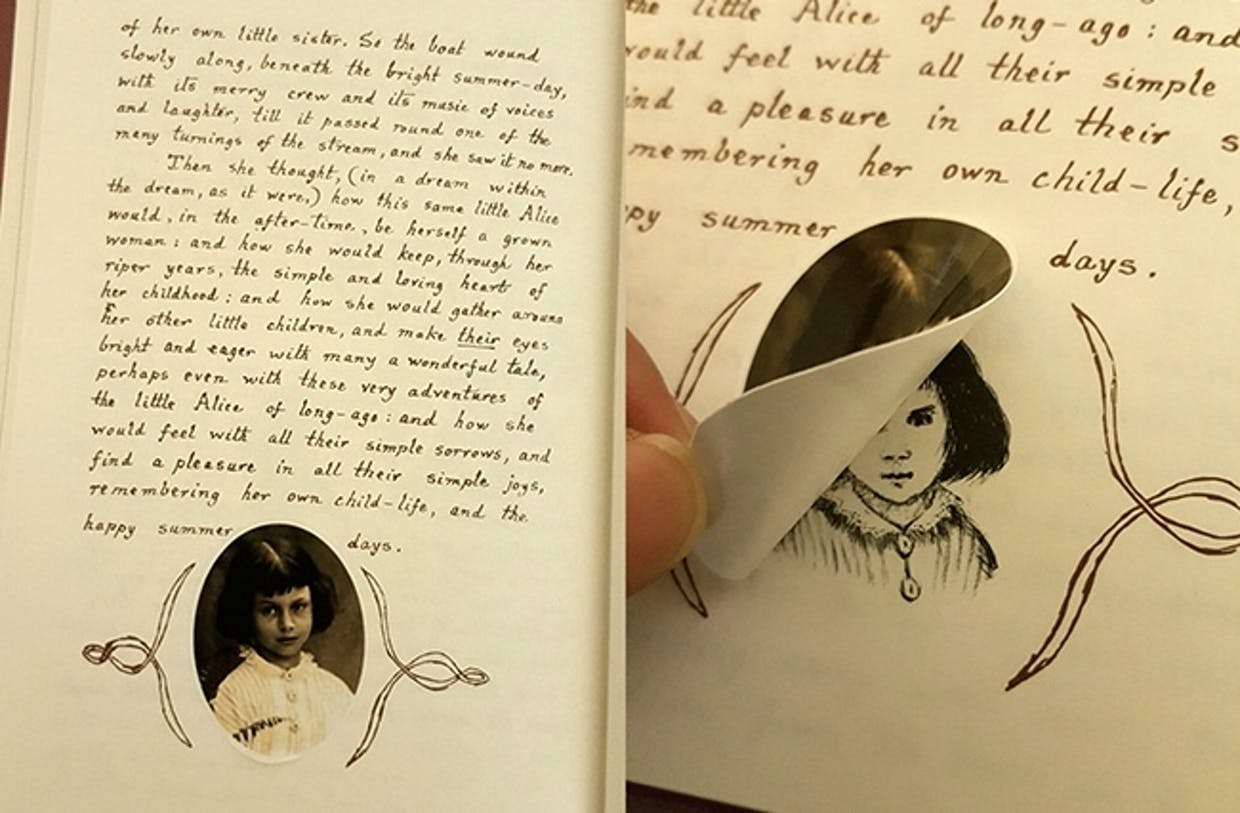 of her own little sister. So the boat wound
slowly along, beneath the bright summer-day,
with its merry crew and its music of voices
and laughter, till it passed round one of the
many turnings of the stream, and she saw it no more.
Then she thought, (in a dream within
the dream, as it were,) how this same little Alice
would, in the after-time, be herself a grown
woman: and how she would keep, through her
riper years, the simple and loving heart of
her childhood: and how she would gather around
her other little children, and make their eyes
bright and eager with many a wonderful tale,
perhaps even with these very adventures of
the little Alice of long-ago: and how she
would feel with all their simple sorrows, and
find a pleasure in all their simple joys,
remembering her own child-life, and the
happy summer days.
the little Alice of long-ago: and
would feel with all their simple
ind a pleasure in all their s
membering her own child-life,
ppy summer days.